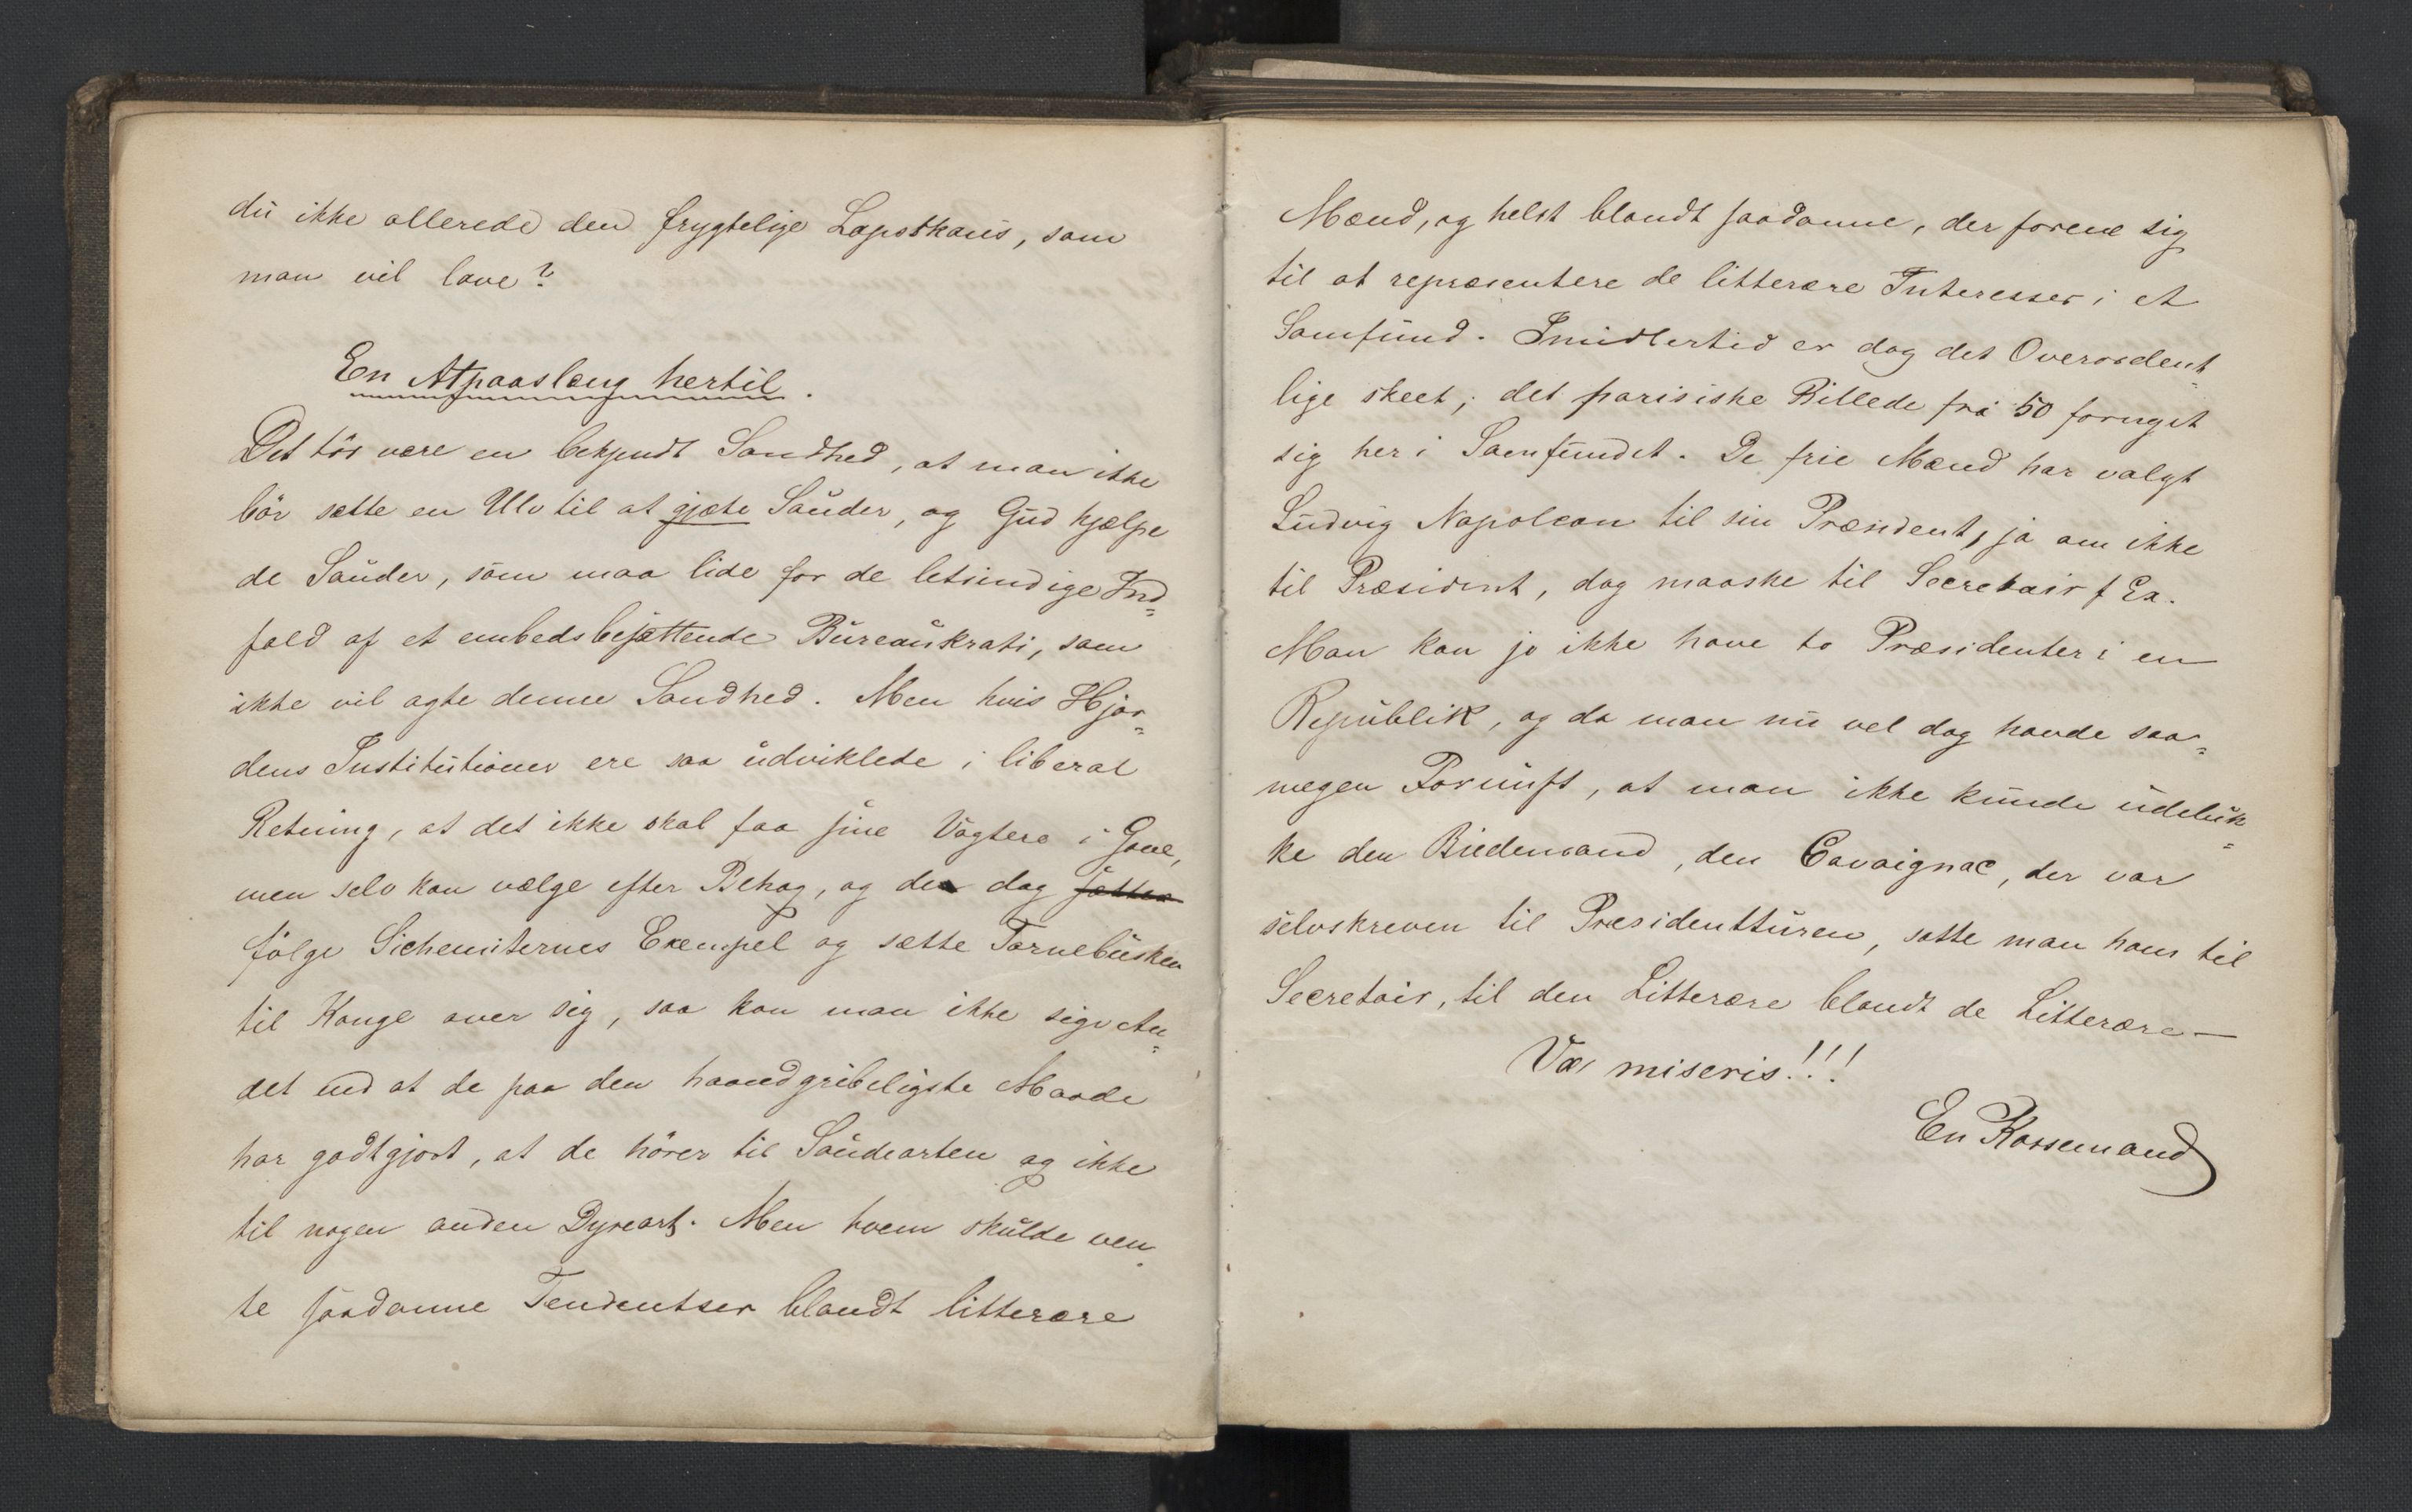 du ikke allerede den frygtelige Lapskaus, som
man vil lave?
En Atpaasleng hertil.
Det tör være en bekjendt Sandhed, at man ikke
bör sætte en Ulv til at gjæte Sauder, og Gud hjælpe
de Sauder, som maa lide for de letsindige Ind=
fald af et embedsbesættende Bureaukrati, som
ikke vil agte denne Sandhed. Men hvis Hjor=
dens Institutioner ere saa udviklede i liberal
Retning, at det ikke skal faa sine Vogtere i Gave,
men selv kan vælge efter Behag, og de dog sætter
fölge Sichemiternes Exempel og sætte Tornebusken
til Konge over sig, saa kan man ikke sige An=
det end at de paa den haandgribeligste Maade
har godtgjort, at de hörer til Saudearten og ikke
til nogen anden Dyreart. Men hvem skulde ven=
te saadanne Tendentser blandt litterære
Mænd, og helst blandt saadanne, der forene sig
til at repræsentere de litterære Interesser i et
Samfund. Imidlertid er dog det Overordent=
lige skeet; det parisiske Billede fra 50 fornyet
sig her i Samfundet. De frie Mænd har valgt
Ludvig Napoleon til sin Præsident, ja om ikke
til Præsident, dog maaske til Secretair f Ex.
Man kan jo ikke have to Præsidenter i en
Republik, og da man nu vel dog havde saa=
megen Fornuft, at man ikke kunde udeluk=
ke den Biedemand, den Cavaignac, der var
selvskreven til Præsidentturen, satte man ham til
Secretair, til den Litterære blandt de Litterære—
Væ miseris!!!
En Kossemand